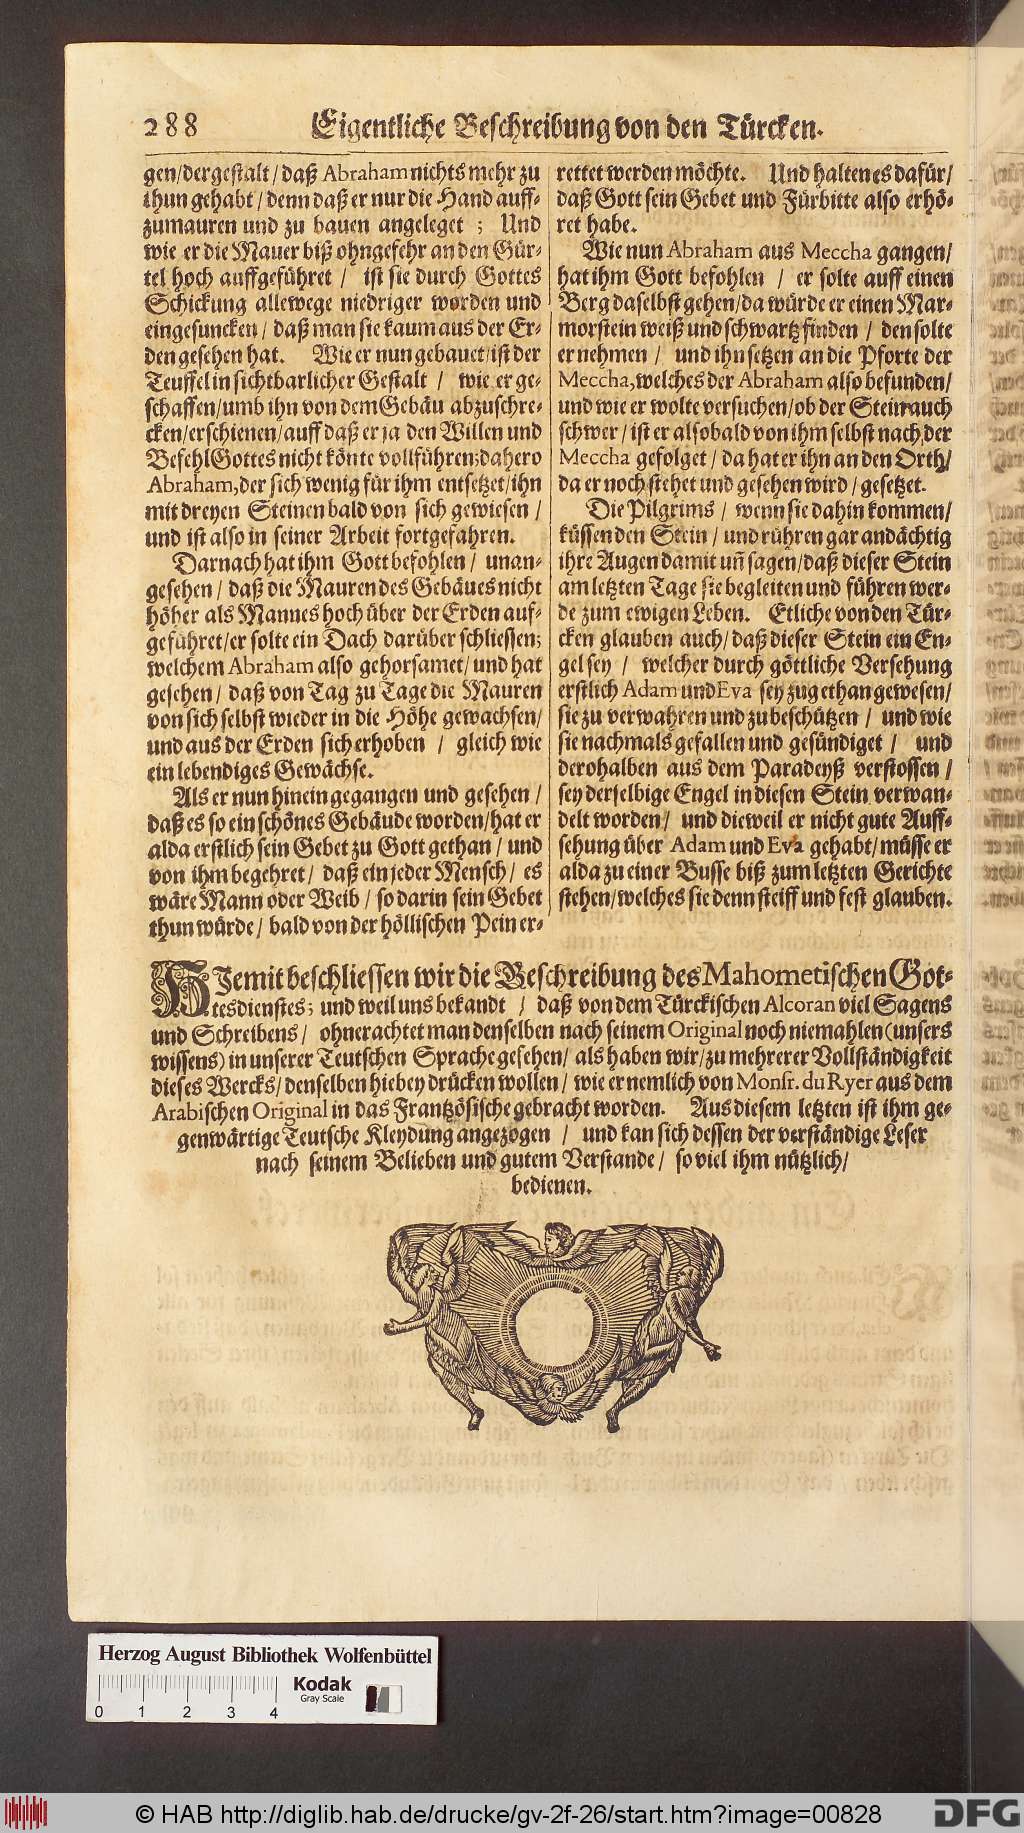 288 Eigentliche Beschreibung von den Türcken.
gen/dergestalt/daß Abraham nichts mehr zu
thun gehabt/denn daß er nur die Hand auff-
zumauren und zu bauen angeleget; Und
wie er die Mauer biß ohngefehr an den Gür-
tel hoch auffgeführet / ist sie durch Gottes
Schickung allewege niedriger worden und
eingesuncken/daß man sie kaum aus der Er-
den gesehen hat. Wie er nun gebauet/ist der
Teuffel in sichtbarlicher Gestalt / wie er ge-
schaffen/umb ihn von dem Gebäu abzuschre-
cken/erschienen/auff daß er ja den Willen und
Befehl Gottes nicht könte vollführen; dahero
Abraham, der sich wenig für ihm entsetzet/ihn
mit dreyen Steinen bald von sich gewiesen /
und ist also in seiner Arbeit fortgefahren.
Darnach hat ihm Gott befohlen / unan-
gesehen / daß die Mauren des Gebäues nicht
höher als Mannes hoch über der Erden auf-
geführet/er solte ein Dach darüber schliessen;
welchem Abraham also gehorsamet/und hat
gesehen / daß von Tag zu Tage die Mauren
von sich selbst wieder in die Höhe gewachsen/
und aus der Erden sich erhoben / gleich wie
ein lebendiges Gewächse.
Als er nun hinein gegangen und gesehen /
daß es so ein schönes Gebäude worden/hat er
alda erstlich sein Gebet zu Gott gethan / und
von ihm begehret / daß ein jeder Mensch / es
wäre Mann oder Weib / so darin sein Gebet
thun würde / bald von der höllischen Pein er-
rettet werden möchte. Und halten es dafür/
daß Gott sein Gebet und Fürbitte also erhö-
ret habe.
Wie nun Abraham aus Meccha gangen/
hat ihm Gott befohlen / er solte auff einen
Berg daselbst gehen/da würde er einen Mar-
morstein weiß und schwartz finden / den solte
er nehmen / und ihn setzen an die Pforte der
Meccha, welches der Abraham also befunden/
und wie er wolte versuchen/ob der Stein auch
schwer / ist er alsobald von ihm selbst nach der
Meccha gefolget / da hat er ihn an den Orth/
da er noch stehet und gesehen wird / gesetzet.
Die Pilgrims / wenn sie dahin kommen/
küssen den Stein / und rühren gar andächtig
ihre Augen damit uñ sagen/daß dieser Stein
am letzten Tage sie begleiten und führen wer-
de zum ewigen Leben. Etliche von den Tür-
cken glauben auch/daß dieser Stein ein En-
gel sey / welcher durch göttliche Versehung
erstlich Adam und Eva sey zugethan gewesen/
sie zu verwahren und zu beschützen / und wie
sie nachmals gefallen und gesündiget / und
derohalben aus dem Paradeyß verstossen /
sey derselbige Engel in diesen Stein verwan-
delt worden / und dieweil er nicht gute Auff-
sehung über Adam und Eva gehabt/müsse er
alda zu einer Busse biß zum letzten Gerichte
stehen/welches sie denn steiff und fest glauben.
HJemit beschliessen wir die Beschreibung des Mahometischen Got-
tesdienstes; und weil uns bekandt / daß von dem Türckischen Alcoran viel Sagens
und Schreibens / ohnerachtet man denselben nach seinem Original noch niemahlen (unsers
wissens) in unserer Teutschen Sprache gesehen / als haben wir/zu mehrerer Vollständigkeit
dieses Wercks/denselben hiebey drücken wollen / wie er nemlich von Monsr. du Ryer aus dem
Arabischen Original in das Frantzösische gebracht worden. Aus diesem letzten ist ihm ge-
genwärtige Teutsche Kleydung angezogen / und kan sich dessen der verständige Leser
nach seinem Belieben und gutem Verstande / so viel ihm nützlich/
bedienen.
Herzog August Bibliothek Wolfenbüttel
Kodak
Gray Scale
0 1 2 3 4
© HAB http://diglib.hab.de/drucke/gv-2f-26/start.htm?image=00828
DFG